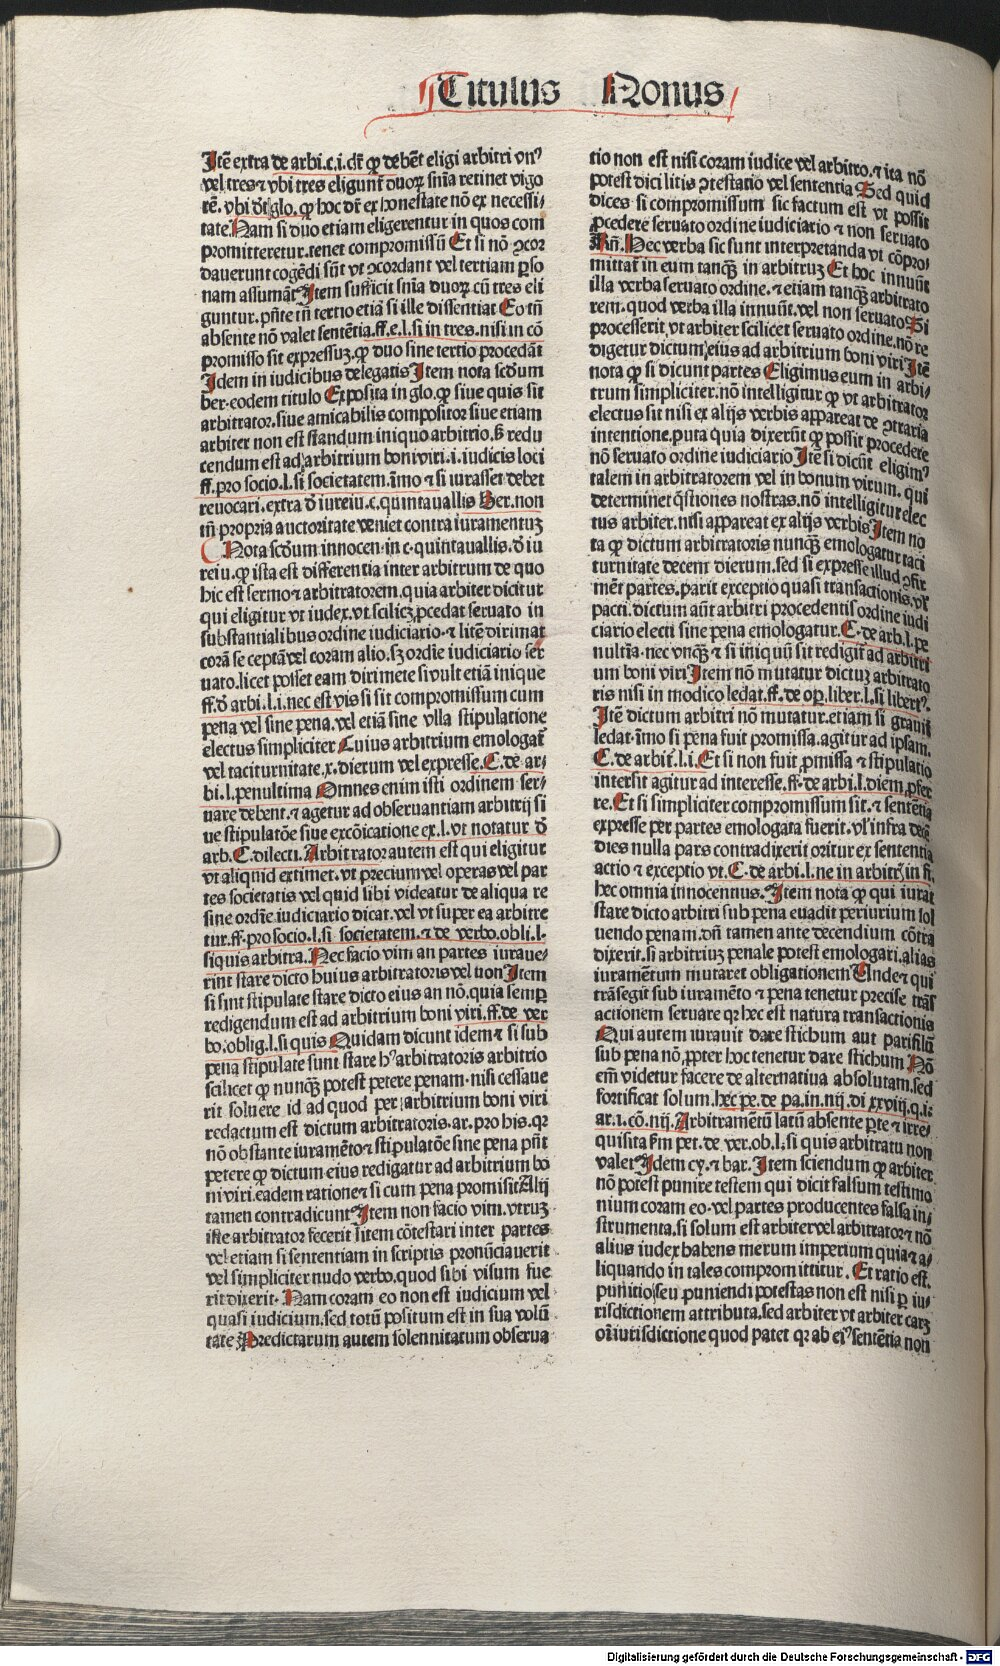 Titulus Nonus
Itē extra de arbi.c.i.dr̄ ꝙ debēt eligi arbitri vnꝰ
vel tres ⁊ vbi tres eligunt̄ duoꝝ sn̄ia retinet vigo
rē. vbi dt̄ glo. ꝙ hoc dr̄ ex honestate nō ex necessi-
tate. Nam si duo etiam eligerentur in quos com
promitteretur. tenet compromissū Et si nō ꝯcor
dauerunt cogēdi sūt vt ꝯcordant vel tertiam ꝑso
nam assumāt Item sufficit sn̄ia duoꝝ cū tres eli
guntur. pn̄te tn̄ tertio etiā si ille dissentiat Eo tn̄
absente nō valet sentētia. ff. e. l. si in tres. nisi in cō
promisso sit expressuꝫ. ꝙ duo sine tertio procedāt
Idem in iudicibus delegatis Item nota scdum
ber. eodem titulo Exposita in glo. ꝙ siue quis sit
arbitrator. siue amicabilis compositor siue etiam
arbiter non est standum iniquo arbitrio. ß redu
cendum est ad arbitrium boni viri. i. iudicis loci
ff. pro socio. l. si societatem. īmo ⁊ si iurasset debet
reuocari. extra d̄ iureiu. c. quintauallis Ber. non
tn̄ propria auctoritate veniet contra iuramentuꝫ
Nota scdum innocen. in c. quintauallis. d̄ iu
reiu. ꝙ ista est differentia inter arbitrum de quo
hic est sermo ⁊ arbitratorem. quia arbiter dicitur
qui eligitur vt iudex. vt scilicꝫ ꝓcedat seruato in
substantialibus ordine iudiciario. ⁊ litē dirimat
corā se ceptā vel coram alio. sꝫ ordīe iudiciario ser
uato. licet posset eam dirimete si vult etiā inique
ff. d̄ arbi. l. i. nec est vis si sit compromissum cum
pena vel sine pena. vel etiā sine vlla stipulatione
electus simpliciter Cuius arbitrium emologat̄
vel taciturnitate. x. dierum vel expresse. C. de ar-
bi. l. penultima Omnes enim isti ordinem ser-
uare debent. ⁊ agetur ad obseruantiam arbitrij si
ue stipulatōe siue excōicatione ex. l. vt notatur d̄
arb. C. dilecti. Arbitrator autem est qui eligitur
vt aliquid extimet. vt precium vel operas vel par
tes societatis vel quid sibi videatur de aliqua re
sine ordīe iudiciario dicat. vel vt super ea arbitre
tur. ff. pro socio. l. si societatem. ⁊ de verbo. obli. l.
siquis arbitra. Nec facio vim an partes iuraue-
rint stare dicto huius arbitratoris vel non Item
si sint stipulate stare dicto eius an nō. quia semꝑ
redigendum est ad arbitrium boni viri. ff. de ver
bo. oblig. l. si quis Quidam dicunt idem ⁊ si sub
pena stipulate sunt stare hꝰ arbitratoris arbitrio
scilicet ꝙ nunqꝫ potest petere penam. nisi cessaue
rit soluere id ad quod per arbitrium boni viri
redactum est dictum arbitratoris. ar. pro his. qꝛ
nō obstante iuramēto ⁊ stipulatōe sine pena pn̄t
petere ꝙ dictum eius redigatur ad arbitrium bo
ni viri. eadem ratione ⁊ si cum pena promisit Alij
tamen contradicunt Item non facio vim. vtruꝫ
iste arbitrator fecerit litem cōtestari inter partes
vel etiam si sententiam in scriptis pronūciauerit
vel simpliciter nudo verbo. quod sibi visum fue
rit dixerit. Nam coram eo non est iudicium vel
quasi iudicium. sed totū positum est in sua volū
tate Predictarum autem solennitatum obserua
tio non est nisi coram iudice vel arbitro. ⁊ ita nō
potest dici litis ꝯtestatio vel sententia Sed quid
dices si compromissum sic factum est vt possit
ꝓcedere seruato ordine iudiciario ⁊ non seruato
Rn̄. Hec verba sic sunt interpretanda vt cōpro-
mittat̄ in eum tanqꝫ in arbitruꝫ Et hoc innuūt
illa verba seruato ordine. ⁊ etiam tanqꝫ arbitrato
rem. quod verba illa innuūt. vel non seruato Si
processerit vt arbiter scilicet seruato ordine. nō re
digetur dictum eius ad arbitrium boni viri Itē
nota ꝙ si dicunt partes Eligimus eum in arbi-
trum simpliciter. nō intelligitur ꝙ vt arbitrator
electus sit nisi ex alijs verbis appareat de ꝯtraria
intentione. puta quia dixerūt ꝙ possit procedere
nō seruato ordine iudiciario Itē si dicūt eligimꝰ
talem in arbitratorem vel in bonum virum. qui
determinet q̄stiones nostras. nō intelligitur elec
tus arbiter. nisi appareat ex alijs verbis Item no
ta ꝙ dictum arbitratoris nunqꝫ emologatur taci
turnitate decem dierum. sed si expresse illud ꝯfir
mēt partes. parit exceptio quasi transactionis. vl̓
pacti. dictum aūt arbitri procedentis ordine iudi
ciario electi sine pena emologatur. C. de arb. l. pe
nultīa. nec vnqꝫ ⁊ si iniquū sit redigit̄ ad arbitri
um boni viri Item nō mutatur dictuꝫ arbitrato
ris nisi in modico ledat. ff. de oꝑ. liber. l. si libertꝰ.
Itē dictum arbitri nō mutatur. etiam si grauiť
ledat. īmo si pena fuit promissa. agitur ad ipsam.
C. de arbiť. l. i. Et si non fuit ꝓmissa ⁊ stipulatio
intersit agitur ad interesse. ff. de arbi. l. diem ꝓfer
re. Et si simpliciter compromissum sit. ⁊ sentētia
expresse per partes emologata fuerit. vl̓ infra decē
dies nulla pars contradixerit oritur ex sententia
actio ⁊ exceptio vt. C. de arbi. l. ne in arbitr̄. in fi.
hec omnia innocentius. Item nota ꝙ qui iurat
stare dicto arbitri sub pena euadit periurium sol
uendo penam. dn̄ tamen ante decendium cōtra
dixerit. si arbitriuꝫ penale potest emologari. alias
iuramētum mutaret obligationem Unde ⁊ qui
trāsegit sub iuramēto ⁊ pena tenetur precise trās
actionem seruare qꝛ hec est natura transactionis
Qui autem iurauit dare stichum aut pamfilū
sub pena nō ꝓpter hoc tenetur dare stichum Nō
em̄ videtur facere de alternatiua absolutam. sed
fortificat solum. hec pe. de pa. in. iiij. di xxviij. q. i.
ar. i. cō. iiij. Arbitramētū latū absente ꝑte ⁊ irre-
quisita ẜm pet. de ver. ob. l. si quis arbitratu non
valet Idem cy. ⁊ bar. Item sciendum ꝙ arbiter
nō potest punire testem qui dicit falsum testimo
nium coram eo. vel partes producentes falsa in-
strumenta. si solum est arbiter vel arbitrator ⁊ nō
alius iudex habens merum imperium quia ⁊ a-
liquando in tales compromittitur. Et ratio est.
punitio seu puniendi potestas non est nisi ꝑ iu-
risdictionem attributa. sed arbiter vt arbiter carꝫ
oī iurisdictione quod patet qꝛ ab eiꝰ sentētia non
Digitalisierung gefördert durch die Deutsche Forschungsgemeinschaft - DFG